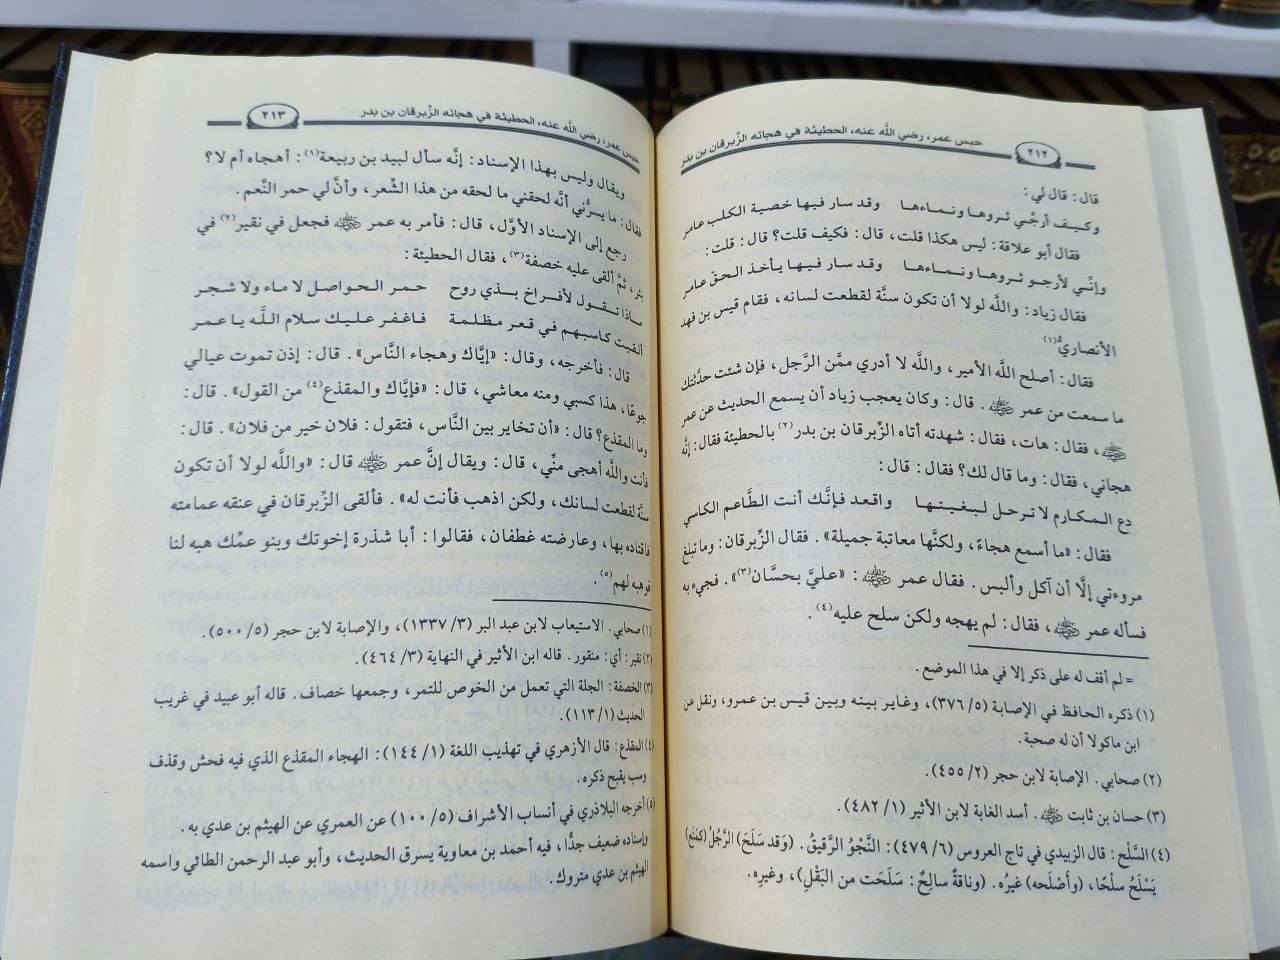 ٢١٢ حبس عمر، رضي الله عنه، الحطيئة في هجائه الزِّبرقان بن بدر
قال: قال لي:
وكيف أرجِّي ثروها ونماءها وقد سار فيها خصية الكلب عامر
فقال أبو علاقة: ليس هكذا قلت، قال: فكيف قلت؟ قال: قلت:
وإنِّي لأرجو ثروها ونماءها وقد سار فيها يأخذ الحق عامر
فقال زياد: والله لولا أن تكون سنَّة لقطعت لسانه، فقام قيس بن فهد
الأنصاريُّ(١)
فقال: أصلح الله الأمير، والله لا أدري ممَّن الرَّجل، فإن شئت حدَّثتك
ما سمعت من عمر ﷺ. قال: وكان يعجب زياد أن يسمع الحديث عن عمر
ﷺ، فقال: هات، فقال: شهدته أتاه الزِّبرقان بن بدر(٢) بالحطيئة فقال: إنَّه
هجاني، فقال: وما قال لك؟ فقال: قال:
دع المكارم لا ترحل لبغيتها واقعد فإنَّك أنت الطَّاعم الكاسي
فقال: «ما أسمع هجاءً، ولكنَّها معاتبة جميلة». فقال الزِّبرقان: وما تبلغ
مروءتي إلَّا أن آكل وألبس. فقال عمر ﷺ: «عليَّ بحسَّان(٣)». فجيء به
فسأله عمر ﷺ، فقال: لم يهجه ولكن سلح عليه(٤).
= لم أقف له على ذكر إلا في هذا الموضع.
(١) ذكره الحافظ في الإصابة (٥/ ٣٧٦)، وغاير بينه وبين قيس بن عمرو، ونقل عن
ابن ماكولا أن له صحبة.
(٢) صحابي. الإصابة لابن حجر (٢/ ٤٥٥).
(٣) حسان بن ثابت ﷺ. أسد الغابة لابن الأثير (١/ ٤٨٢).
(٤) السَّلْح: قال الزبيدي في تاج العروس (٦/ ٤٧٩): النَّجْوُ الرَّقيقُ. (وَقد سَلَحَ) الرَّجُلُ (كمَنَع)
يَسْلَحُ سلْحًا، (وأَسْلَحه) غيرُه. (وناقةٌ سالِحٌ: سَلَحَت من البَقْلِ)، وغيرِه.
حبس عمر، رضي الله عنه، الحطيئة في هجائه الزِّبرقان بن بدر ٢١٣
ويقال وليس بهذا الإسناد: إنَّه سأل لبيد بن ربيعة(١): أهجاه أم لا؟
فقال: ما يسرُّني أنَّه لحقني ما لحقه من هذا الشِّعر، وأنَّ لي حمر النَّعم.
رجع إلى الإسناد الأوَّل، قال: فأمر به عمر ﷺ فجعل في نقير(٢) في
بئر، ثمَّ ألقى عليه خصفة(٣)، فقال الحطيئة:
ماذا تقول لأفراخ بذي روح حمر الحواصل لا ماء ولا شجر
ألقيت كاسبهم في قعر مظلمة فاغفر عليك سلام الله يا عمر
قال: فأخرجه، وقال: «إيَّاك وهجاء النَّاس». قال: إذن تموت عيالي
جوعًا، هذا كسبي ومنه معاشي، قال: «فإيَّاك والمقذع(٤) من القول». قال:
وما المقذع؟ قال: «أن تخاير بين النَّاس، فتقول: فلان خير من فلان». قال:
فأنت والله أهجى منِّي، قال: ويقال إنَّ عمر ﷺ قال: «والله لولا أن تكون
سنَّة لقطعت لسانك، ولكن اذهب فأنت له». فألقى الزِّبرقان في عنقه عمامته
فاقتاده بها، وعارضته غطفان، فقالوا: أبا شذرة إخوتك وبنو عمِّك هبه لنا
فوهبه لهم(٥).
(١) صحابي. الاستيعاب لابن عبد البر (٣/ ١٣٣٧)، والإصابة لابن حجر (٥/ ٥٠٠).
(٢) نقير: أي: منقور. قاله ابن الأثير في النهاية (٣/ ٤٦٤).
(٣) الخصفة: الجلة التي تعمل من الخوص للتمر، وجمعها خصاف. قاله أبو عبيد في غريب
الحديث (١/ ١١٣).
(٤) المقذع: قال الأزهري في تهذيب اللغة (١/ ١٤٤): الهجاء المقذع الذي فيه فحش وقذف
وسب يقبح ذكره.
(٥) أخرجه البلاذري في أنساب الأشراف (٥/ ١٠٠) عن العمري عن الهيثم بن عدي به.
وإسناده ضعيف جدًّا، فيه أحمد بن معاوية يسرق الحديث، وأبو عبد الرحمن الطائي واسمه
الهيثم بن عدي متروك.